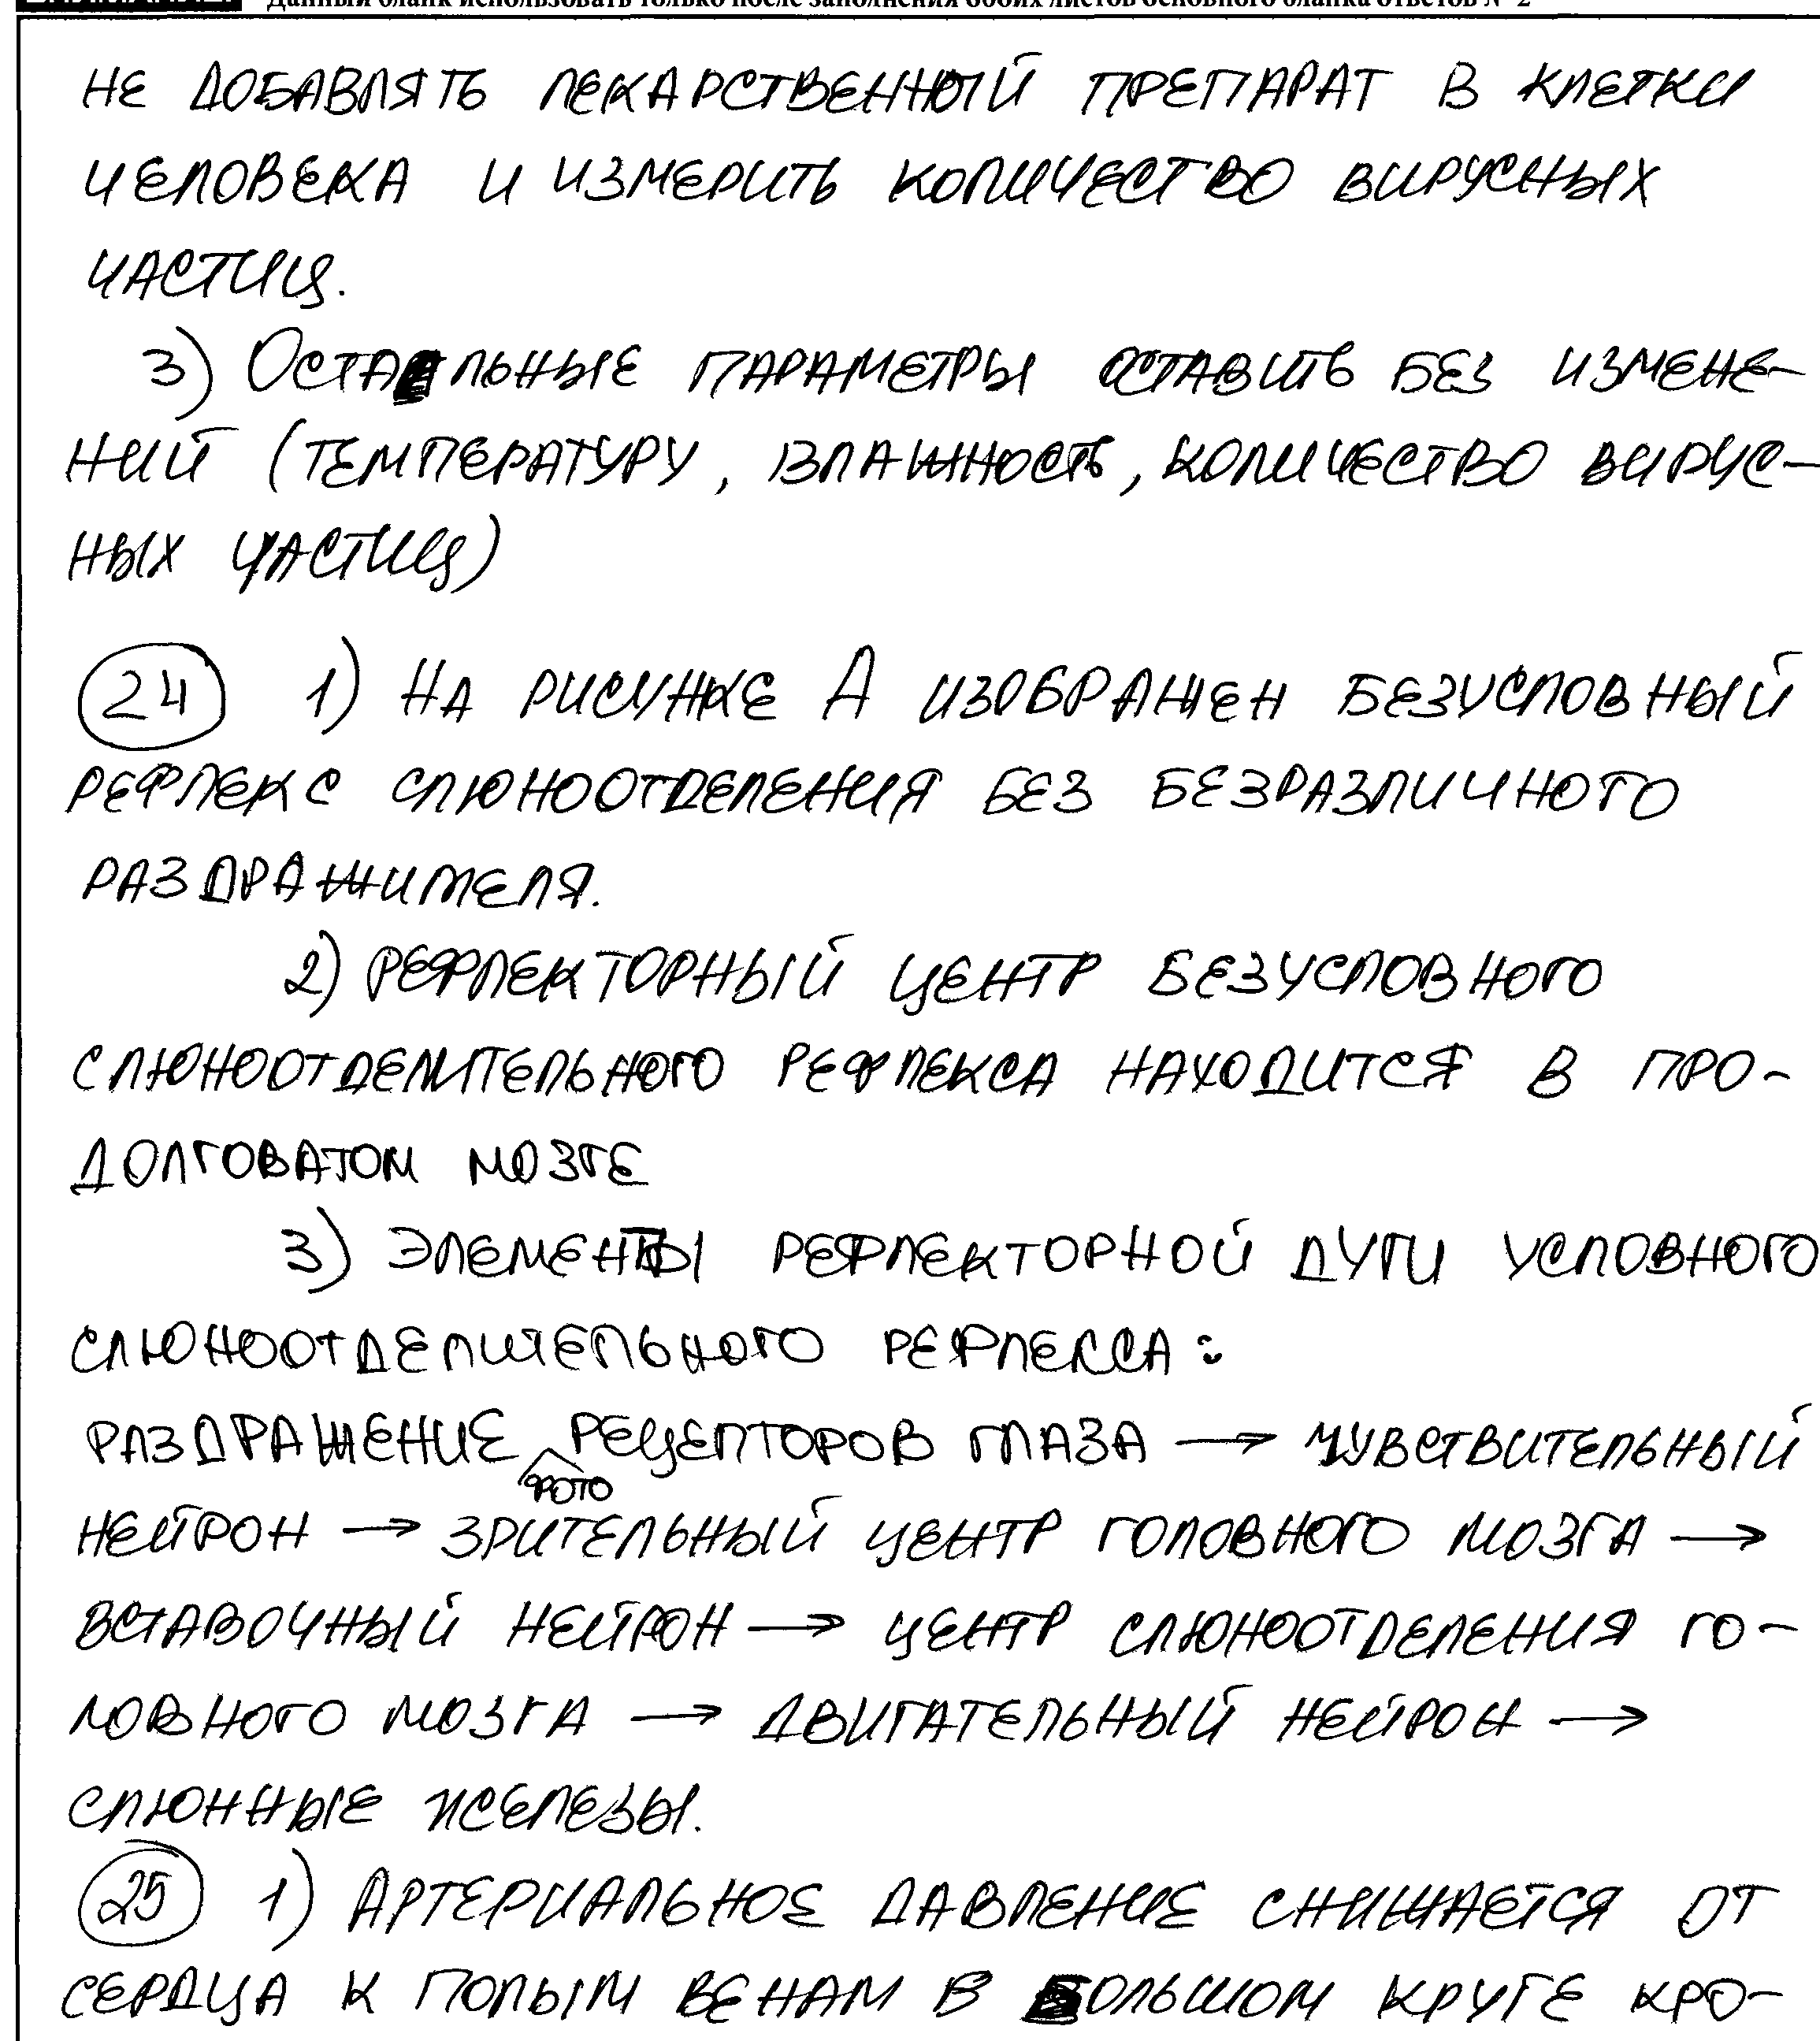 Данный бланк использовать только после заполнения обоих листов основного бланка ответов № 2
НЕ ДОБАВЛЯТЬ ЛЕКАРСТВЕННЫЙ ПРЕПАРАТ В КЛЕТКИ
ЧЕЛОВЕКА И ИЗМЕРИТЬ КОЛИЧЕСТВО ВИРУСНЫХ
ЧАСТИЦ.
3) ОСТАЛЬНЫЕ ПАРАМЕТРЫ ОСТАВИТЬ БЕЗ ИЗМЕНЕ-
НИЙ (ТЕМПЕРАТУРУ, ВЛАЖНОСТЬ, КОЛИЧЕСТВО ВИРУС-
НЫХ ЧАСТИЦ)
24 1) НА РИСУНКЕ А ИЗОБРАЖЕН БЕЗУСЛОВНЫЙ
РЕФЛЕКС СЛЮНООТДЕЛЕНИЯ БЕЗ БЕЗРАЗЛИЧНОГО
РАЗДРАЖИТЕЛЯ.
2) РЕФЛЕКТОРНЫЙ ЦЕНТР БЕЗУСЛОВНОГО
СЛЮНООТДЕЛИТЕЛЬНОГО РЕФЛЕКСА НАХОДИТСЯ В ПРО-
ДОЛГОВАТОМ МОЗГЕ
3) ЭЛЕМЕНТЫ РЕФЛЕКТОРНОЙ ДУГИ УСЛОВНОГО
СЛЮНООТДЕЛИТЕЛЬНОГО РЕФЛЕКСА:
РАЗДРАЖЕНИЕ ФОТОРЕЦЕПТОРОВ ГЛАЗА → ЧУВСТВИТЕЛЬНЫЙ
НЕЙРОН → ЗРИТЕЛЬНЫЙ ЦЕНТР ГОЛОВНОГО МОЗГА →
ВСТАВОЧНЫЙ НЕЙРОН → ЦЕНТР СЛЮНООТДЕЛЕНИЯ ГО-
ЛОВНОГО МОЗГА → ДВИГАТЕЛЬНЫЙ НЕЙРОН →
СЛЮННЫЕ ЖЕЛЕЗЫ.
25 1) АРТЕРИАЛЬНОЕ ДАВЛЕНИЕ СНИЖАЕТСЯ ОТ
СЕРДЦА К ПОЛЫМ ВЕНАМ В БОЛЬШОМ КРУГЕ КРО-